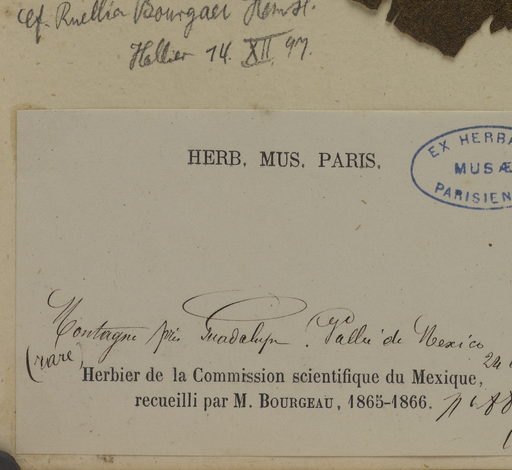 cf. Ruellia Bourgaei Hemsl.
Hallier 14. XII. 97.
HERB. MUS. PARIS.
EX HERBA
MUSÆ
PARISIEN
Montagne près Guadalupe. Vallée de Mexico
(rare)
24
Herbier de la Commission scientifique du Mexique,
recueilli par M. BOURGEAU, 1865-1866.